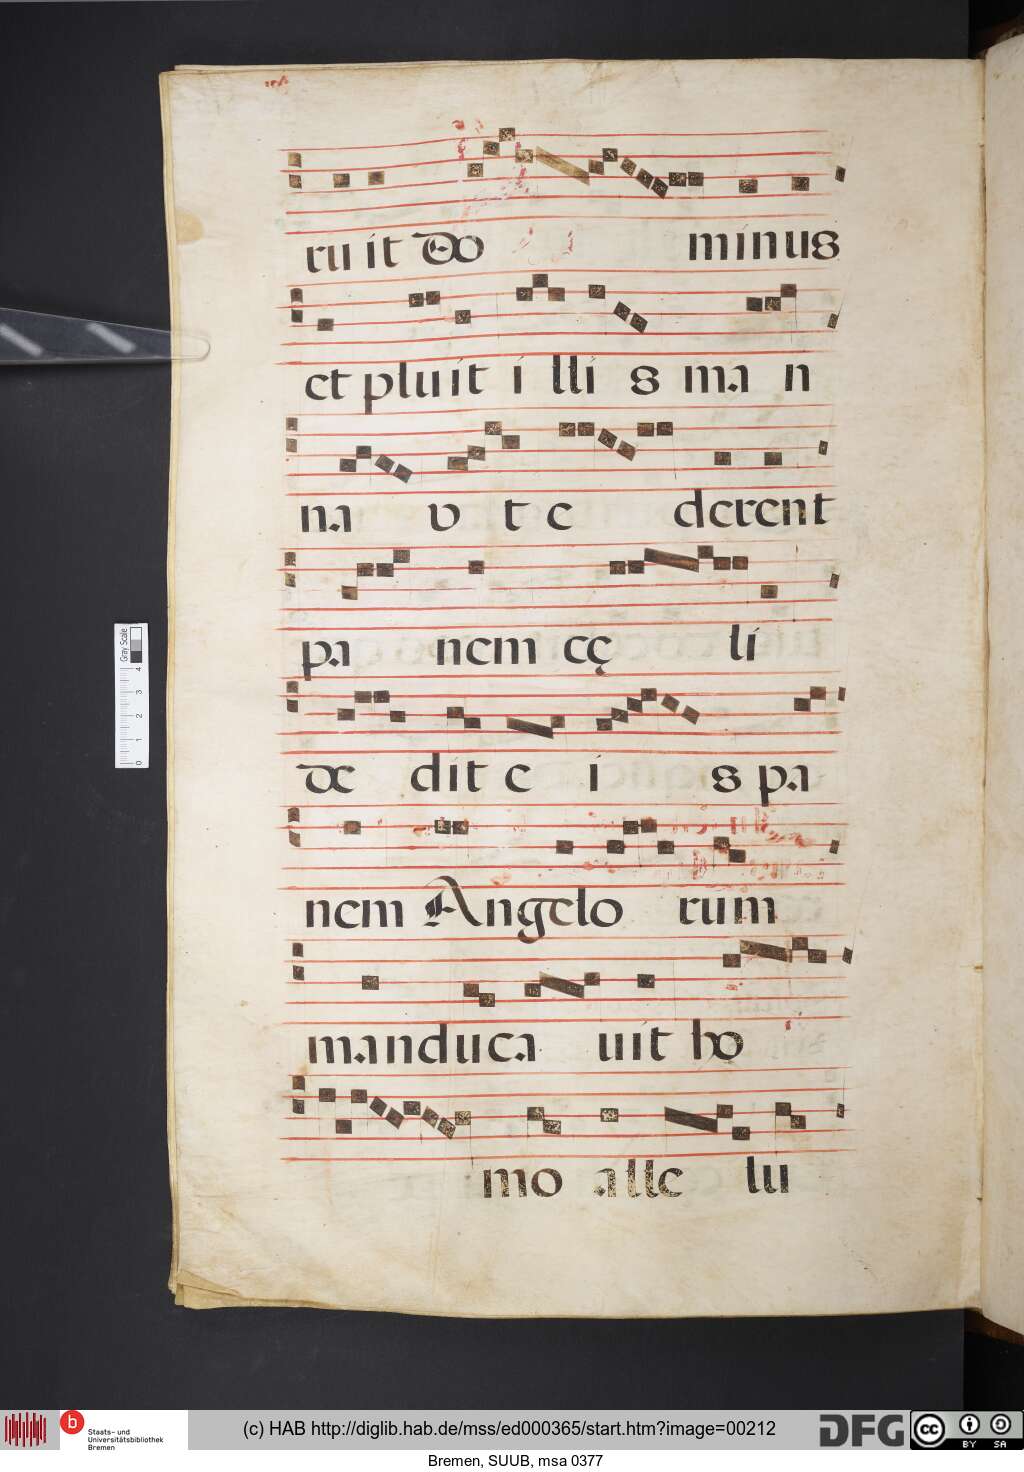 ruit Do minus
et pluit i lli s ma n
na v t e derent
pa nem cę li
de dit e i s pa
nem Angelo rum
manduca uit ho
mo alle lu
Gray Scale
4
3
2
1
0
b
Staats- und
Universitätsbibliothek
Bremen
(c) HAB http://diglib.hab.de/mss/ed000365/start.htm?image=00212
DFG
cc BY SA
Bremen, SUUB, msa 0377